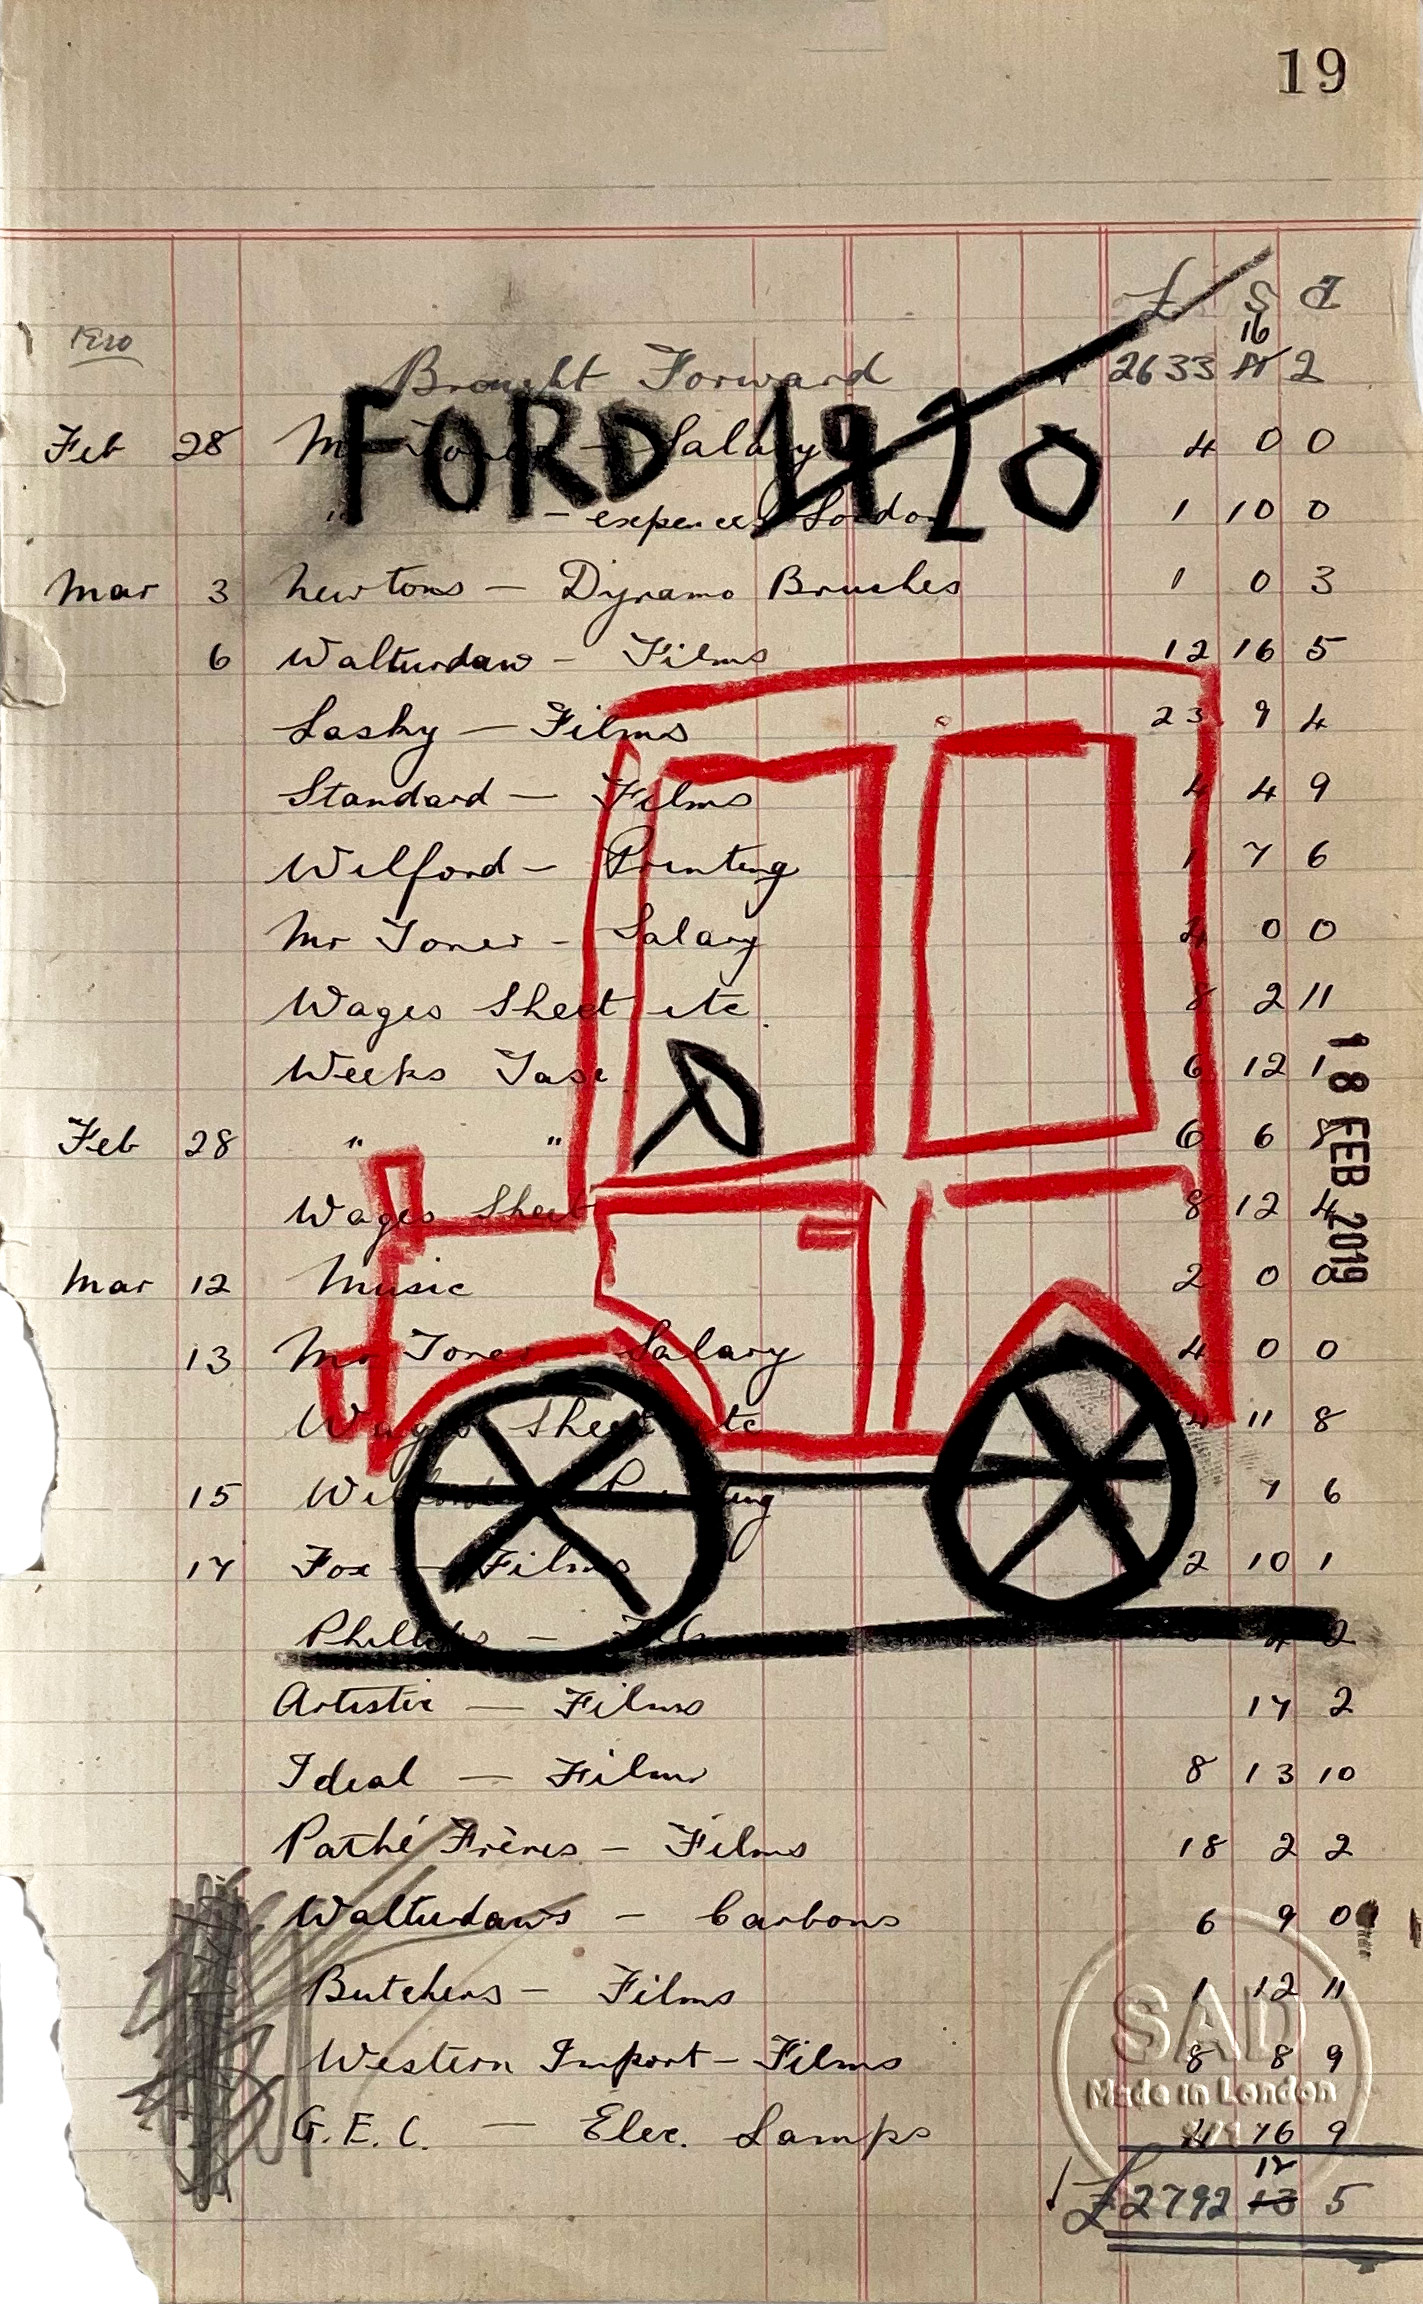 19
£ S D
1920
16
Brought Forward 2633 2
FORD 1920
Feb 28 Mr Toner - Salary 4 0 0
" - expences London 1 10 0
Mar 3 Newtons - Dynamo Brushes 1 0 3
6 Walturdaw - Films 12 16 5
Lasky - Films 23 9 4
Standard - Films 4 4 9
Wilford - Printing 1 7 6
Mr Toner - Salary 4 0 0
Wages Sheet etc. 8 2 11
Weeks Tax 6 12 1
18 FEB 2019
Feb 28 " " 6 6 8
Wages Sheet 8 12 4
Mar 12 Music 2 0 0
13 Mr Toner - Salary 4 0 0
Wages Sheet etc 11 8
15 Wilford - Printing 7 6
17 Fox - Films 2 10 1
Phillips - 4 2
Artistic - Films 17 2
Ideal - Films 8 13 10
Pathé Frères - Films 18 2 2
Walturdaws - Carbons 6 9 0
Butchers - Films 1 12 11
Western Import - Films 8 8 9
G.E.C. - Elec. Lamps 4 16 9
SAD
Made in London
12
£2792 13 5